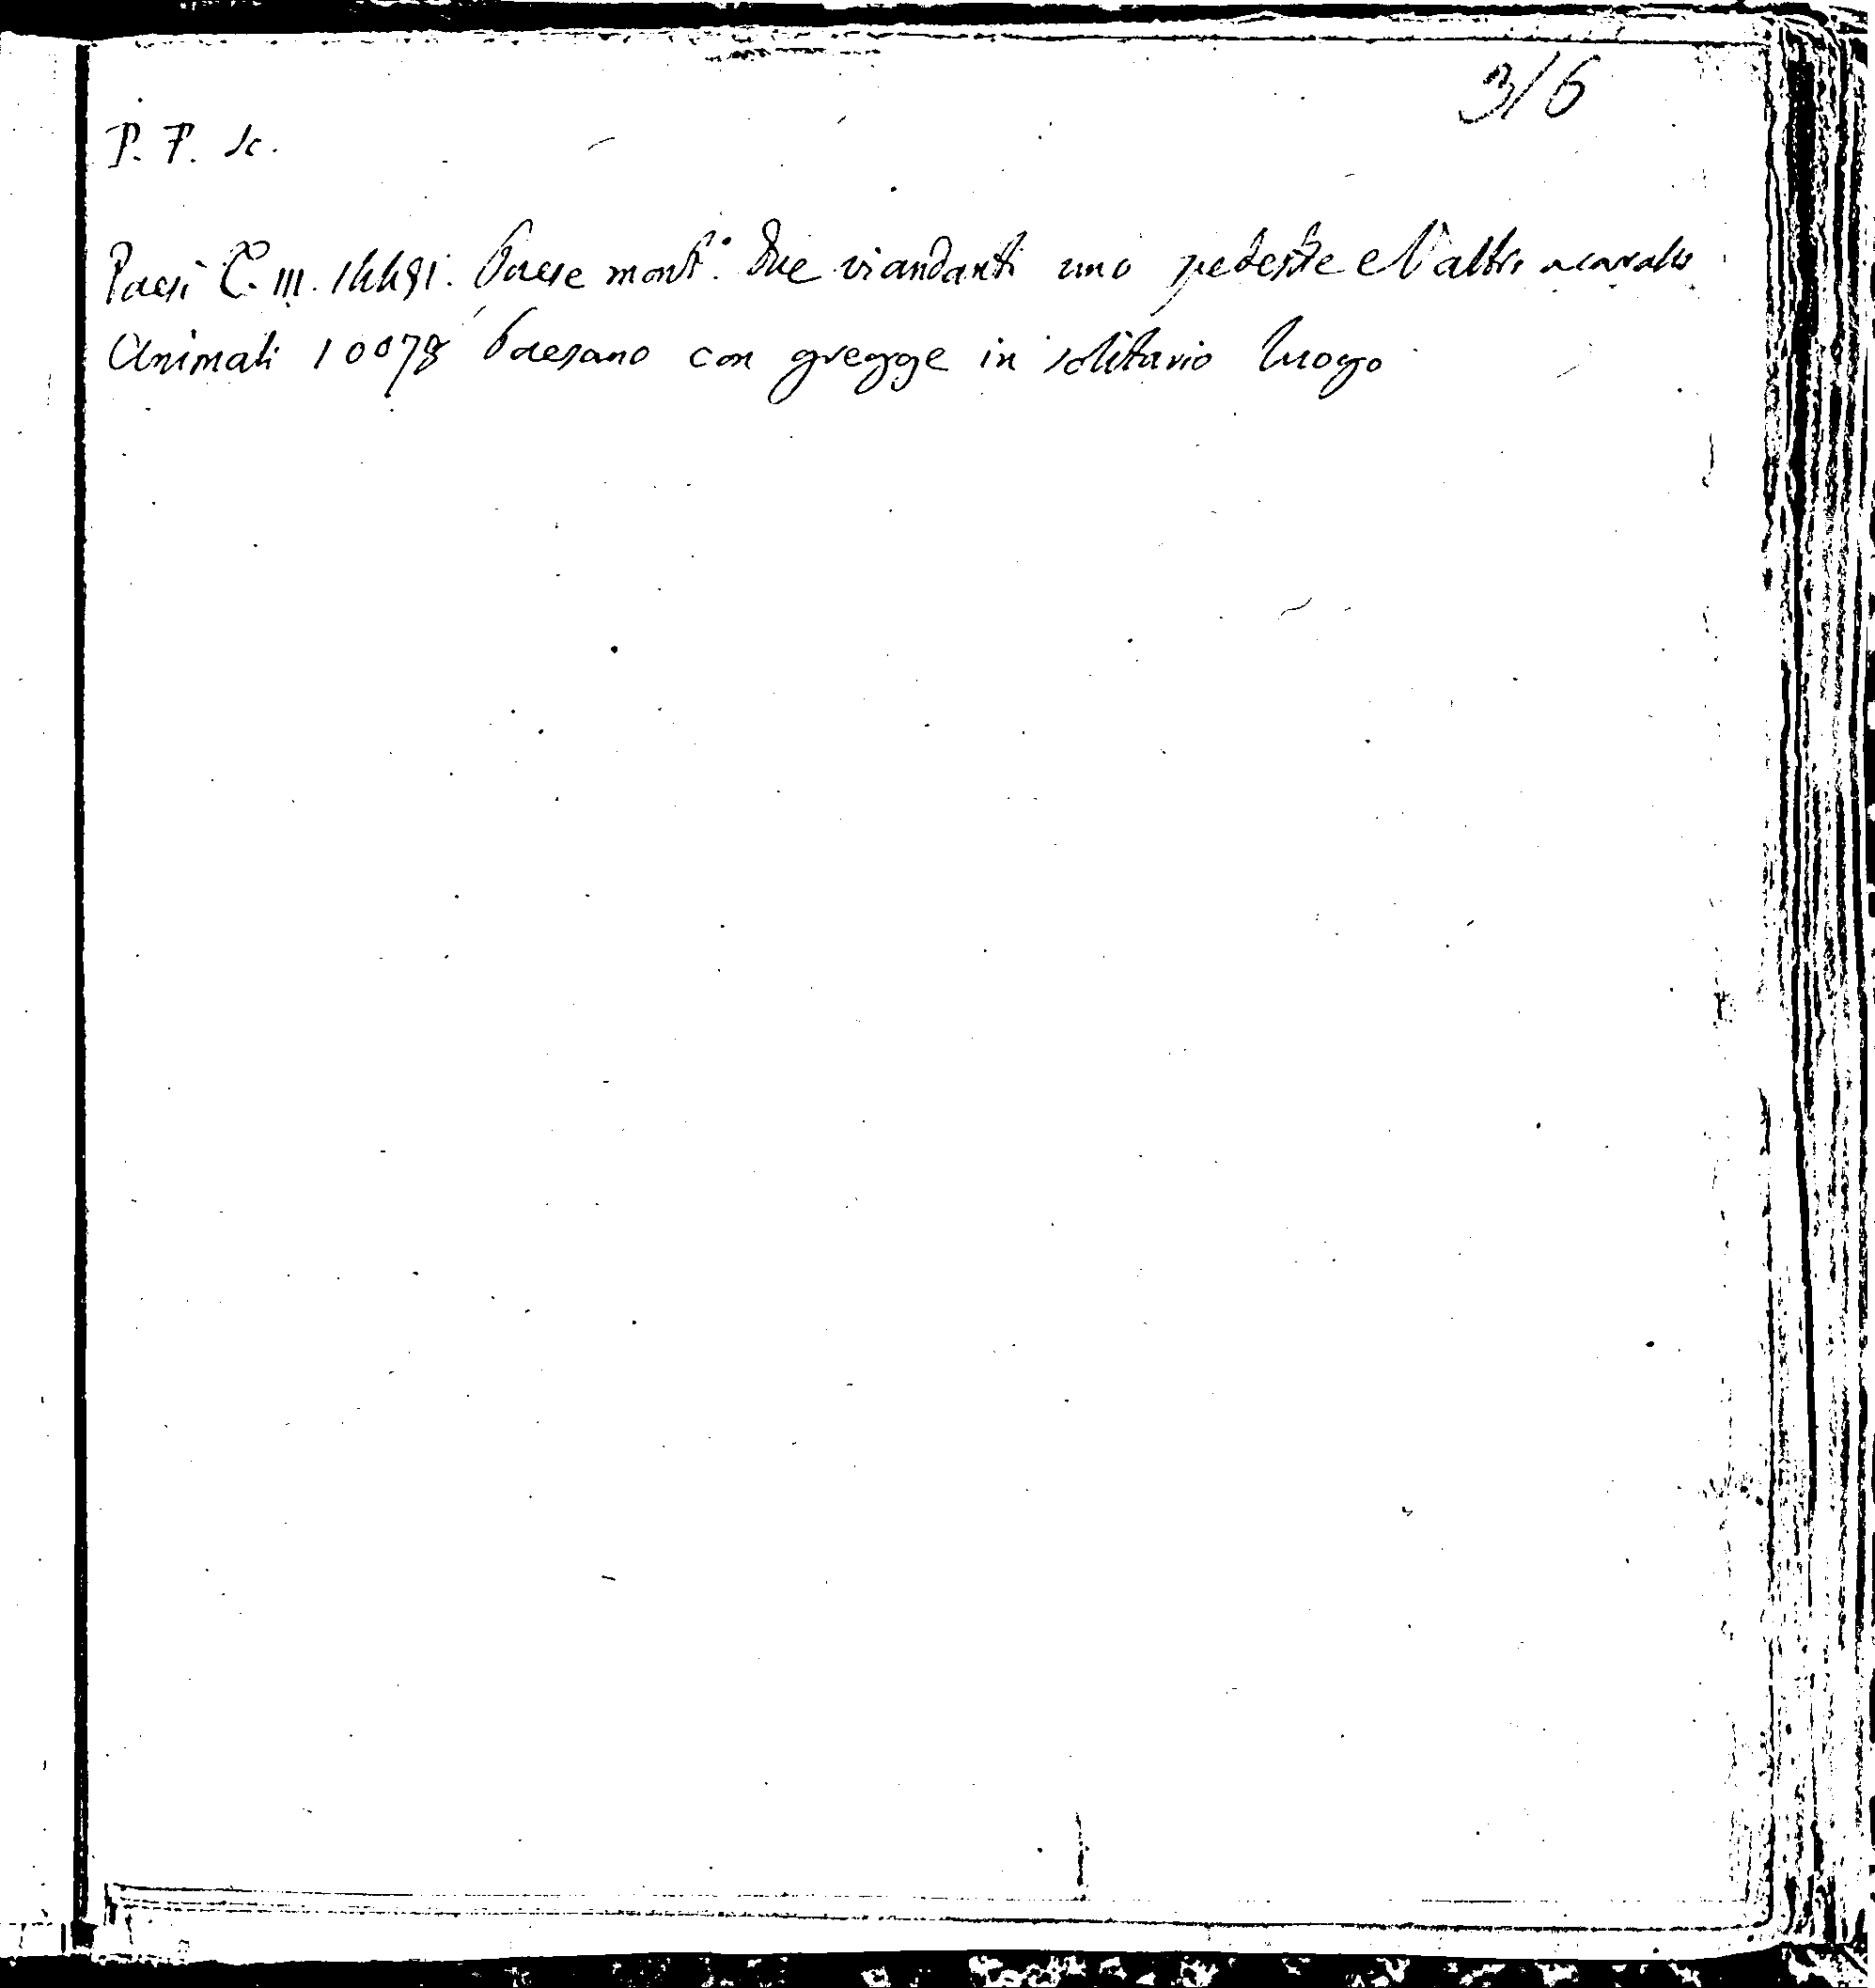 316
P. F. sc.
Paesi C. III. 14491. Paese mont.º Due viandanti uno pedestre e l'altro a cavallo
Animali 10078 Paesano con gregge in solitario luogo